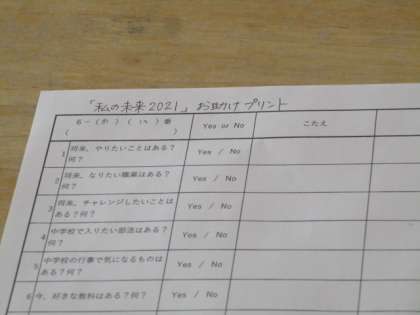 「私の未来2021」お助けプリント
6-( か ) ( い ) 番 Yes or No こたえ
( )
1 将来、やりたいことはある? Yes / No
何?
2 将来、なりたい職業はある? Yes / No
何?
3 将来、チャレンジしたいことは Yes / No
ある?何?
4 中学校で入りたい部活はある? Yes / No
何?
5 中学校の行事で気になるものは Yes / No
ある?何?
6 今、好きな教科はある?何? Yes / No